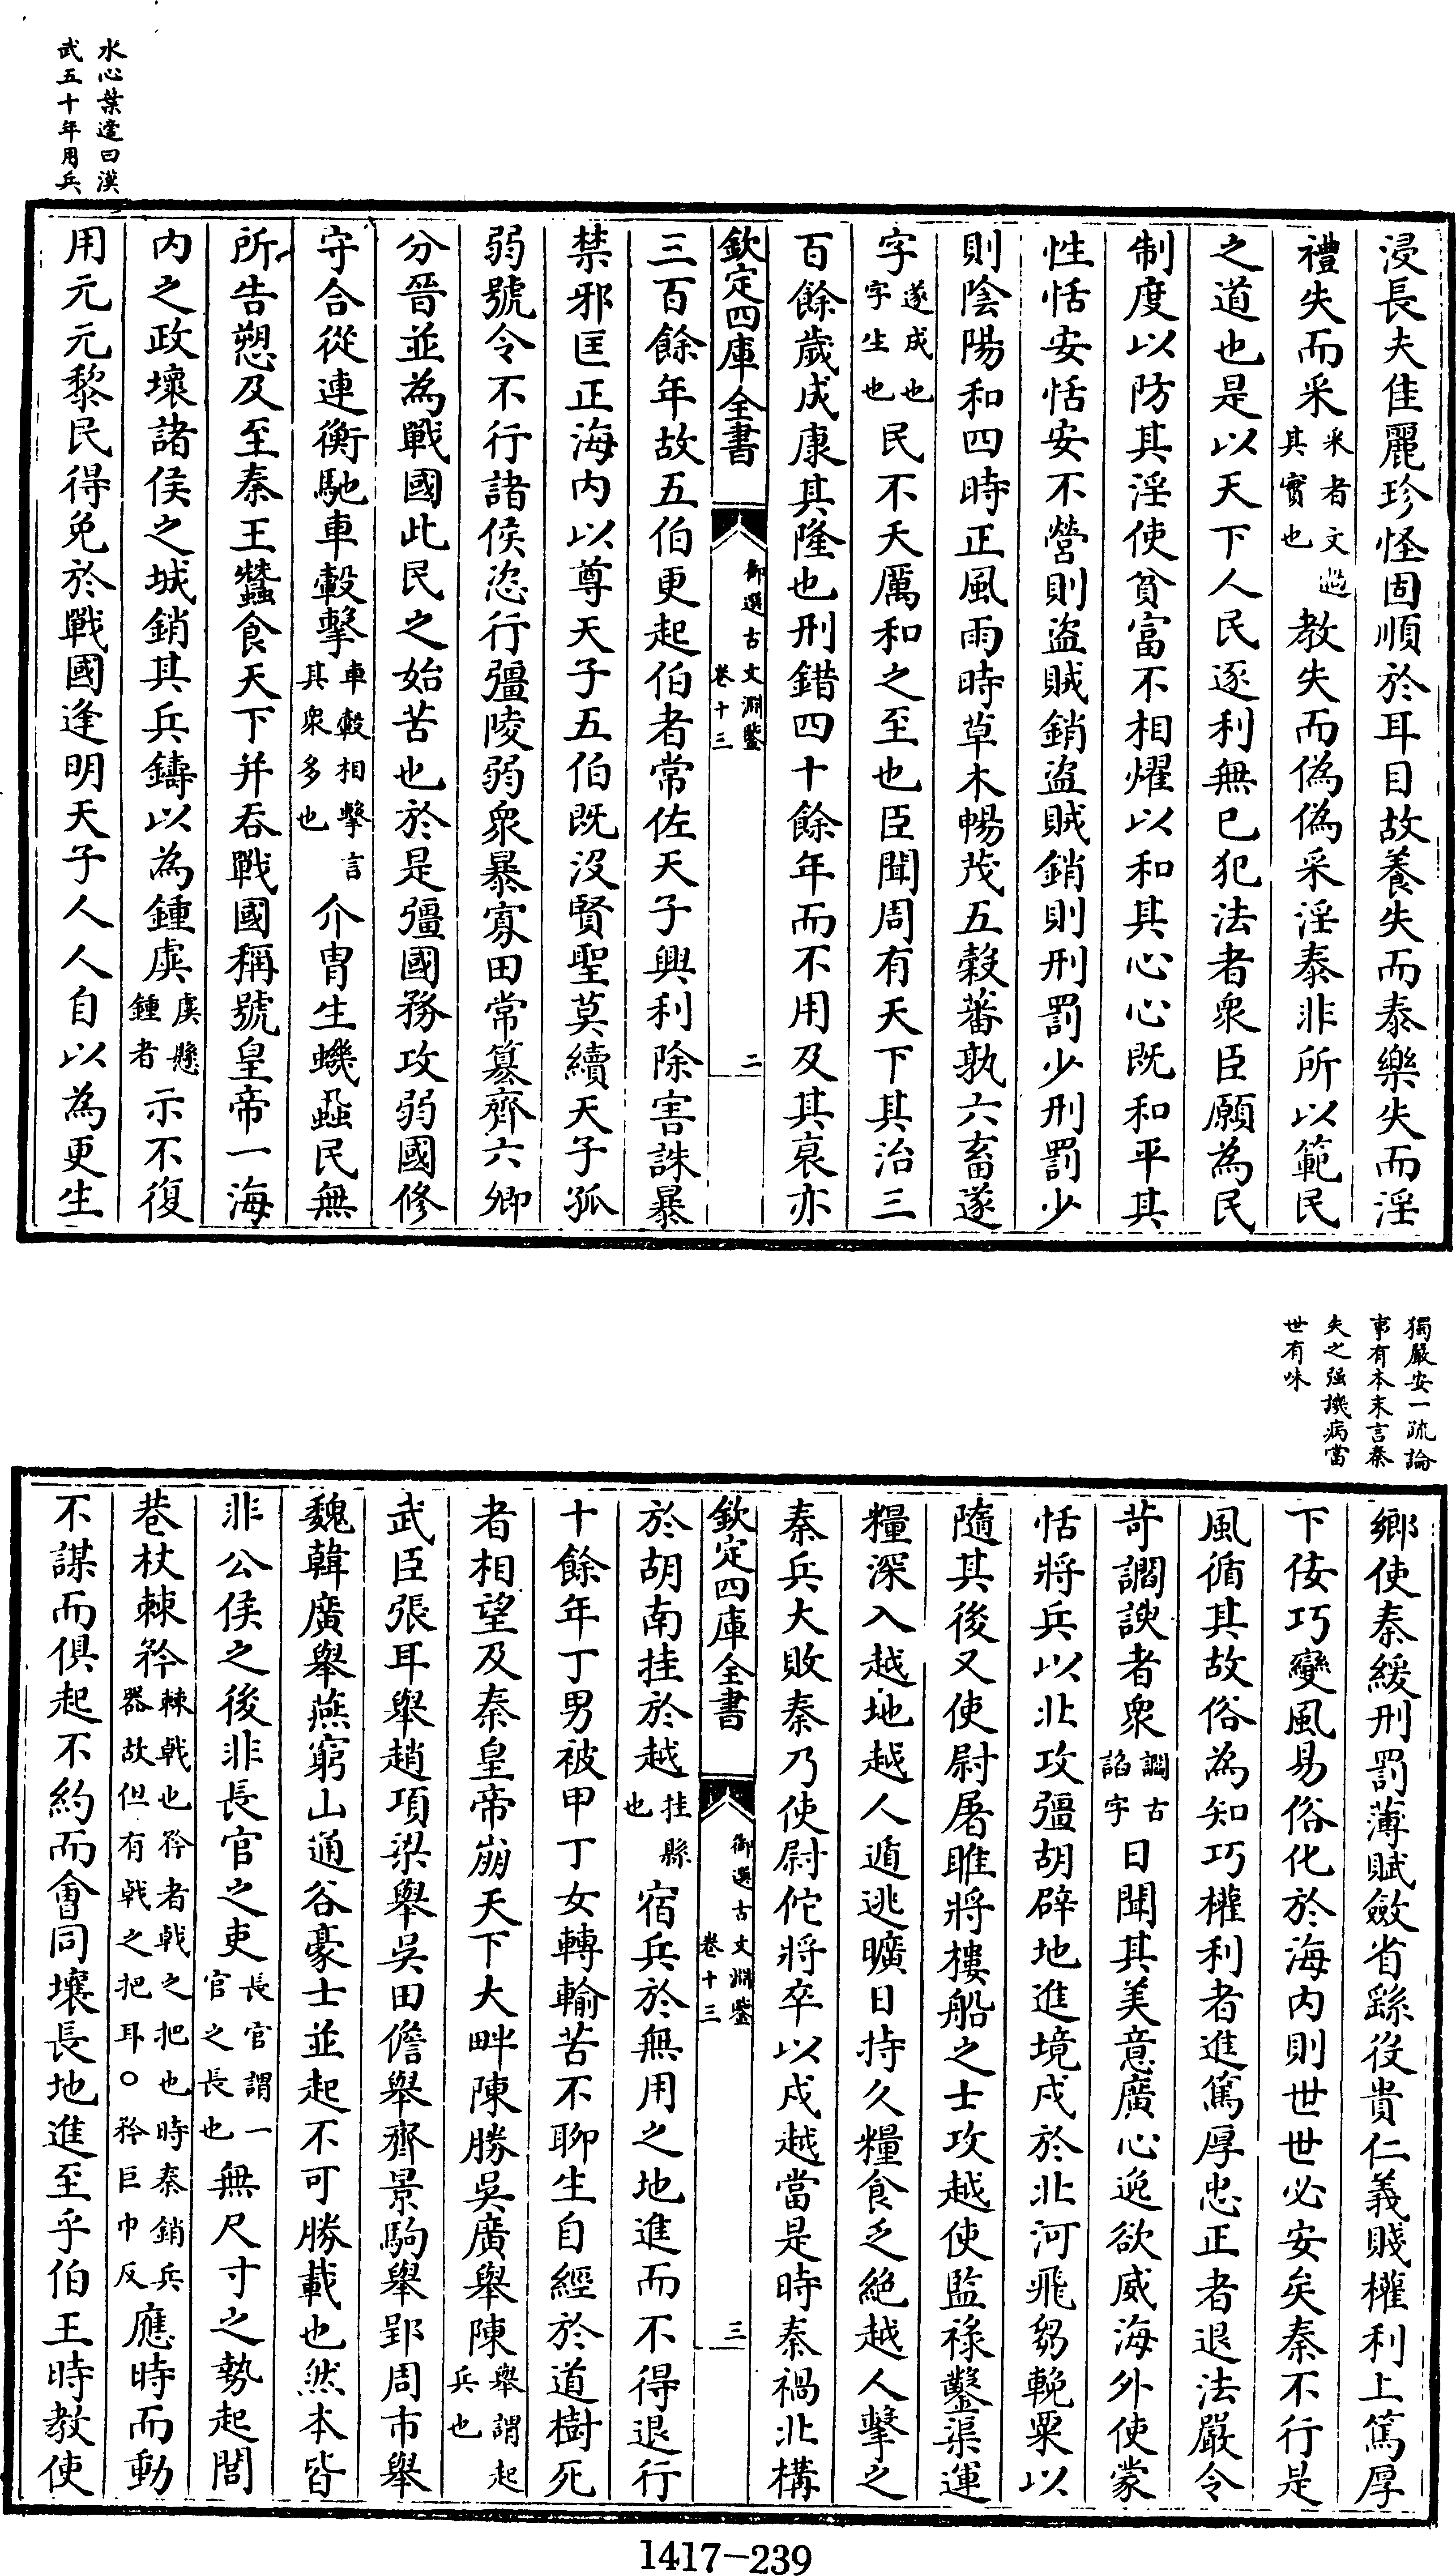 水心葉適曰漢
武五十年用兵
浸長夫佳麗珍怪固順於耳目故養失而泰樂失而淫
禮失而采采者文過其實也教失而偽偽采淫泰非所以範民
之道也是以天下人民逐利無已犯法者衆臣願為民
制度以防其淫使貧富不相燿以和其心心既和平其
性恬安恬安不營則盜賊銷盜賊銷則刑罰少刑罰少
則陰陽和四時正風雨時草木暢茂五穀蕃孰六畜遂
字遂成也字生也民不夭厲和之至也臣聞周有天下其治三
百餘歲成康其隆也刑錯四十餘年而不用及其衰亦
欽定四庫全書 御選古文淵鑒卷十三 二
三百餘年故五伯更起伯者常佐天子興利除害誅暴
禁邪匡正海內以尊天子五伯既沒賢聖莫續天子孤
弱號令不行諸侯恣行彊陵弱衆暴寡田常簒齊六卿
分晉並為戰國此民之始苦也於是彊國務攻弱國修
守合從連衡馳車轂擊車轂相擊言其衆多也介胄生蟣蝨民無
所告愬及至秦王蠶食天下并吞戰國稱號皇帝一海
内之政壞諸侯之城銷其兵鑄以為鍾虡虡懸鍾者示不復
用元元黎民得免於戰國逢明天子人人自以為更生
獨嚴安一疏論
事有本末言秦
失之强譏病當
世有味
鄉使秦緩刑罰薄賦斂省繇役貴仁義賤權利上篤厚
下佞巧變風易俗化於海内則世世必安矣秦不行是
風循其故俗為知巧權利者進篤厚忠正者退法嚴令
苛讇諛者衆讇古諂字日聞其美意廣心逸欲威海外使蒙
恬將兵以北攻彊胡辟地進境戍於北河飛芻輓粟以
隨其後又使尉屠睢將樓船之士攻越使監祿鑿渠運
糧深入越地越人遁逃曠日持久糧食乏絶越人擊之
秦兵大敗秦乃使尉佗將卒以戍越當是時秦禍北構
欽定四庫全書 御選古文淵鑒卷十三 三
於胡南挂於越挂縣也宿兵於無用之地進而不得退行
十餘年丁男被甲丁女轉輸苦不聊生自經於道樹死
者相望及秦皇帝崩天下大畔陳勝吳廣舉陳舉謂起兵也
武臣張耳舉趙項梁舉吳田儋舉齊景駒舉郢周市舉
魏韓廣舉燕窮山通谷豪士並起不可勝載也然本皆
非公侯之後非長官之吏長官謂一官之長也無尺寸之勢起閭
巷杖棘矜棘戟也矜者戟之把也時秦銷兵器故但有戟之把耳○矜巨巾反應時而動
不謀而俱起不約而會同壤長地進至乎伯王時教使
1417-239